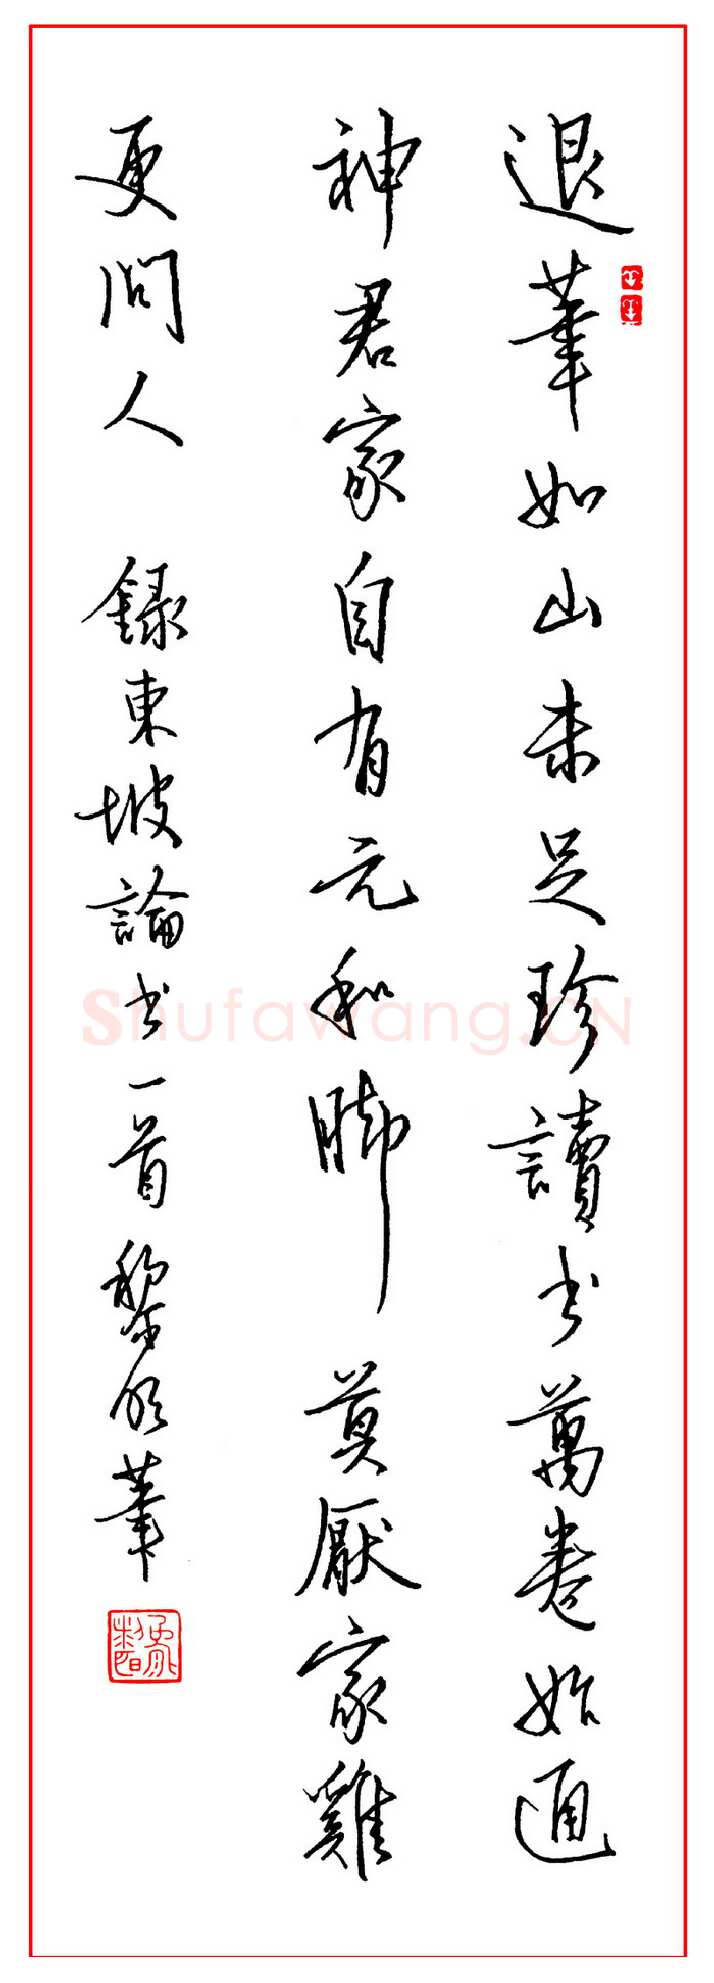 退筆如山未足珍讀书萬卷始通
神君家自有元和脚莫厭家雞
更問人 錄東坡論书一首 黎 筆
Shufawang.CN